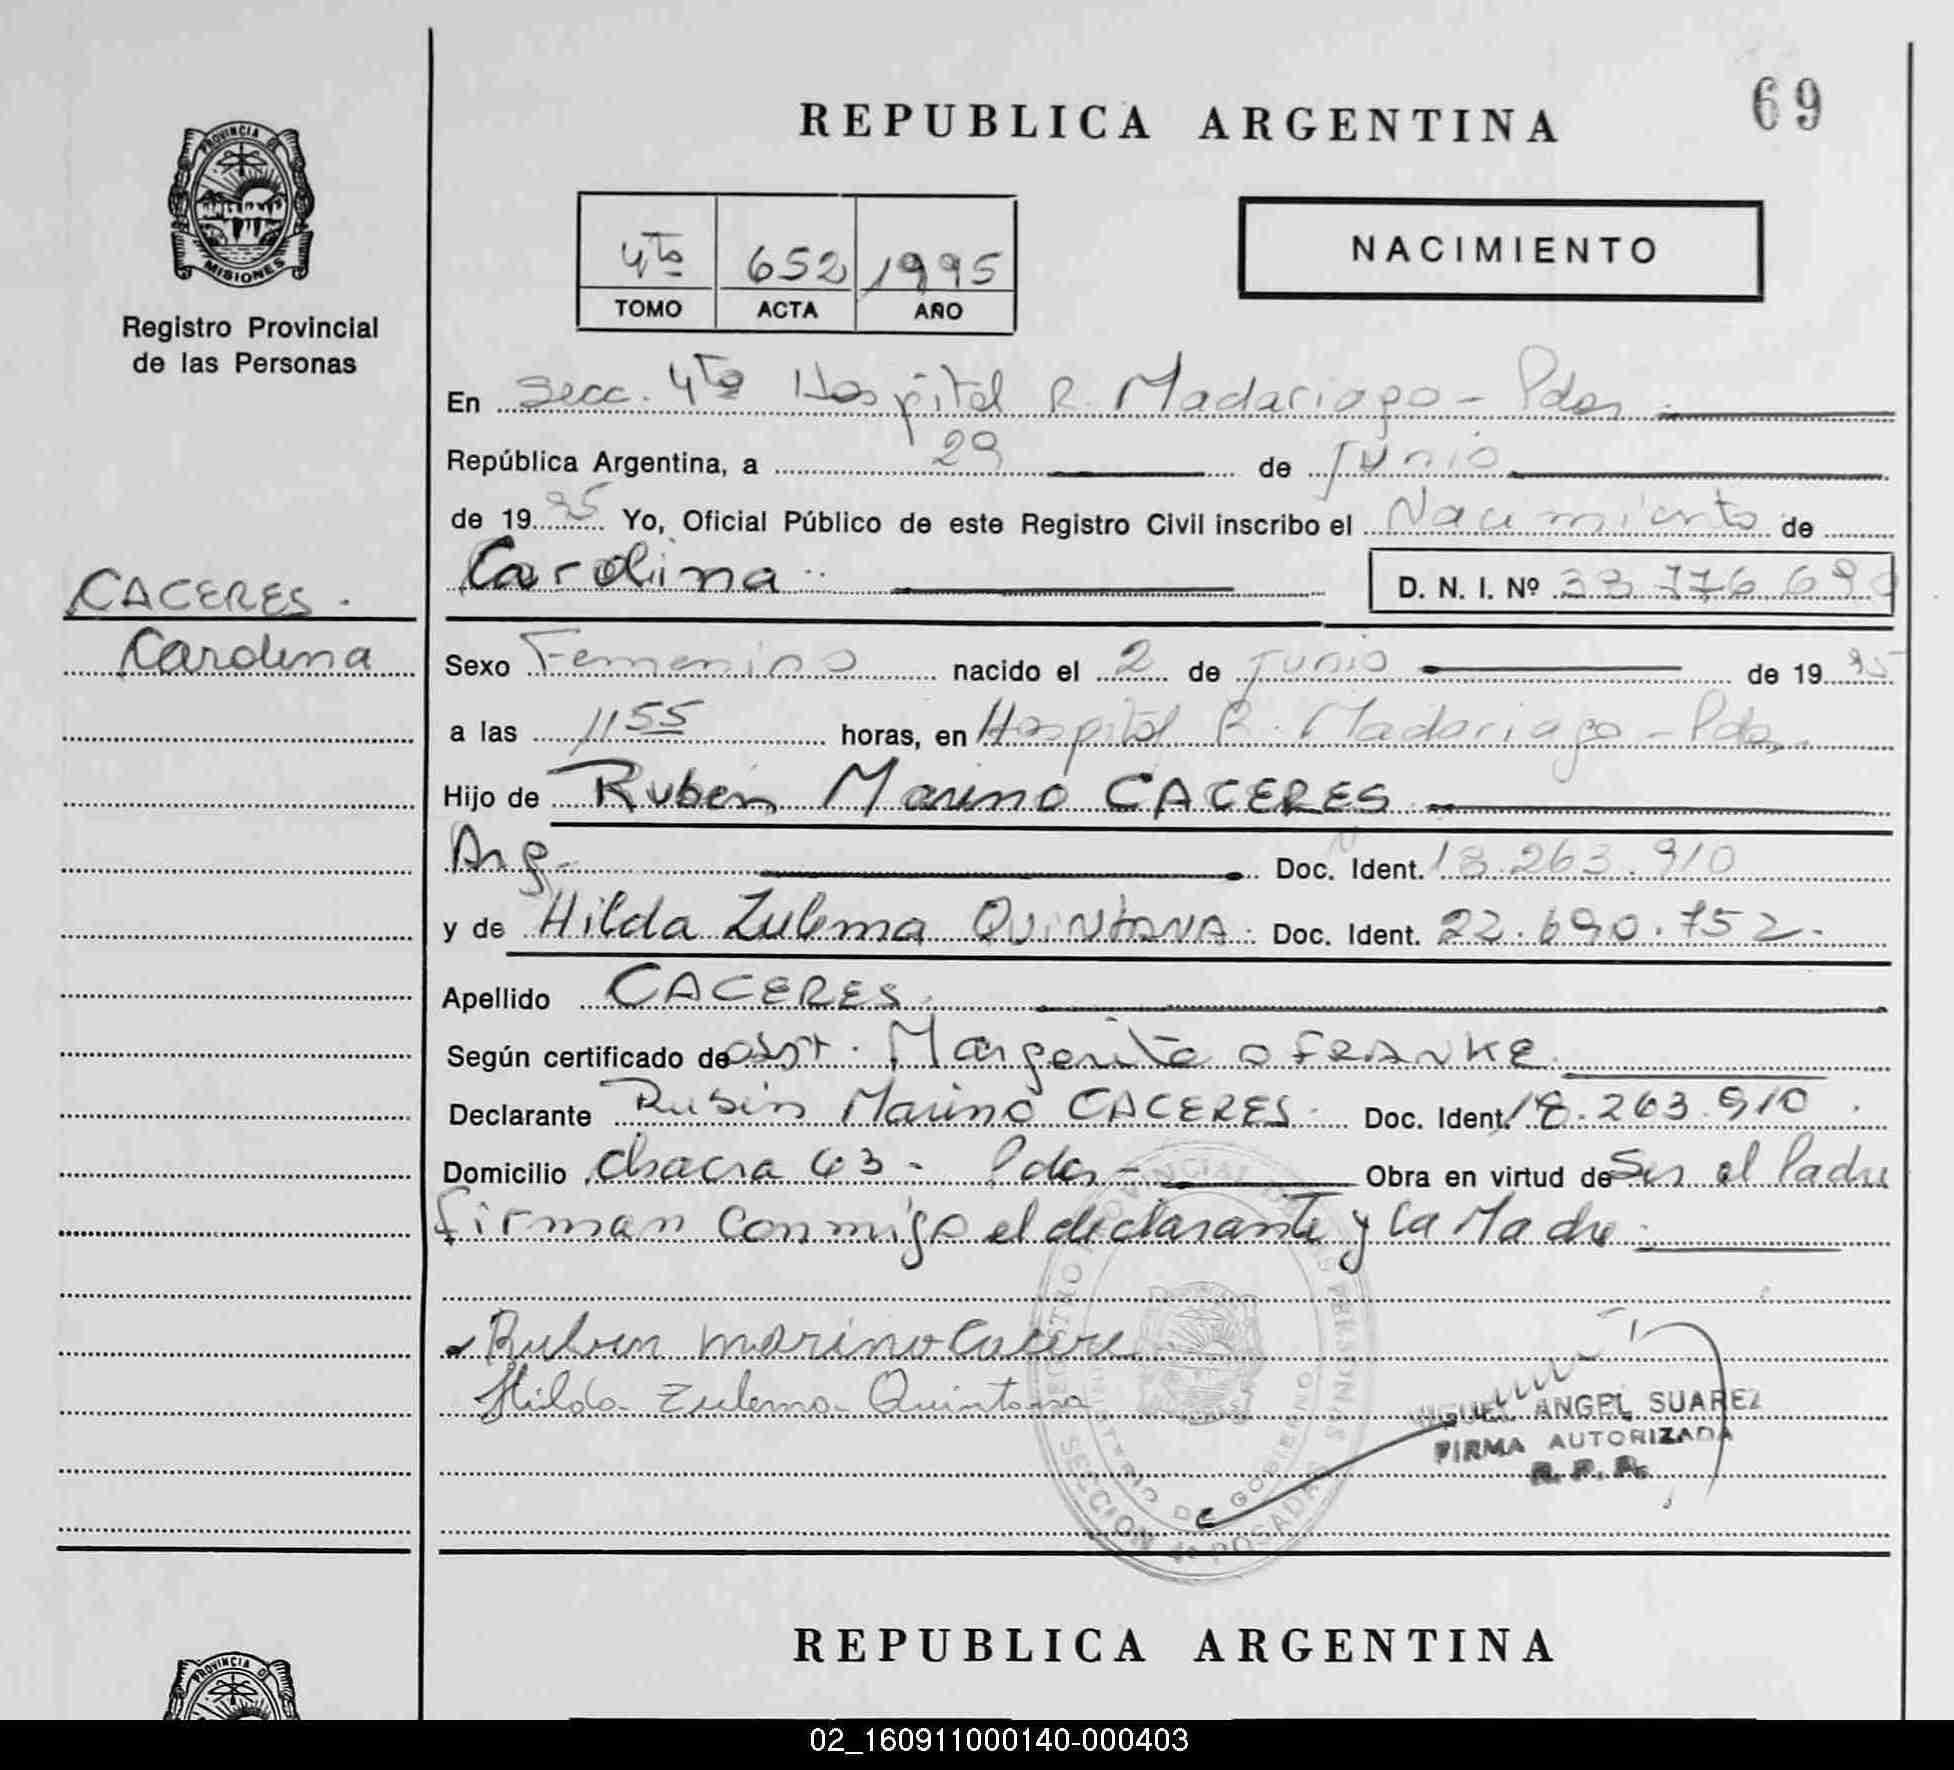 69
REPUBLICA ARGENTINA
PROVINCIA DE
MISIONES
Registro Provincial
de las Personas
4to 652 1995
TOMO ACTA AÑO
NACIMIENTO
En Secc. 4ta Hospital R. Madariaga - Pdas
República Argentina, a 29 de Junio
de 1995 Yo, Oficial Público de este Registro Civil inscribo el Nacimiento de
Carolina D. N. I. Nº 38.776.690
CACERES.
Carolina
Sexo Femenino nacido el 2 de Junio de 1995
a las 1155 horas, en Hospital R. Madariaga - Pdas.
Hijo de Ruben Marino CACERES
Arg. Doc. Ident. 18.263.910
y de Hilda Zulema QUINTANA. Doc. Ident. 22.690.752.
Apellido CACERES.
Según certificado de obst. Margarita FRANKE
Declarante Ruben Marino CACERES. Doc. Ident. 18.263.910.
Domicilio chacra 63 - Pdas - Obra en virtud de Ser el Padre
firman conmigo el declarante y la Madre.
Ruben marino Cacere
Hilda Zulema Quintana
REGISTRO PROVINCIAL DE LAS PERSONAS
MINISTERIO DE GOBIERNO
SECCION 4ª POSADAS
MIGUEL ANGEL SUAREZ
FIRMA AUTORIZADA
R. P. P.
REPUBLICA ARGENTINA
PROVINCIA DE
02_160911000140-000403